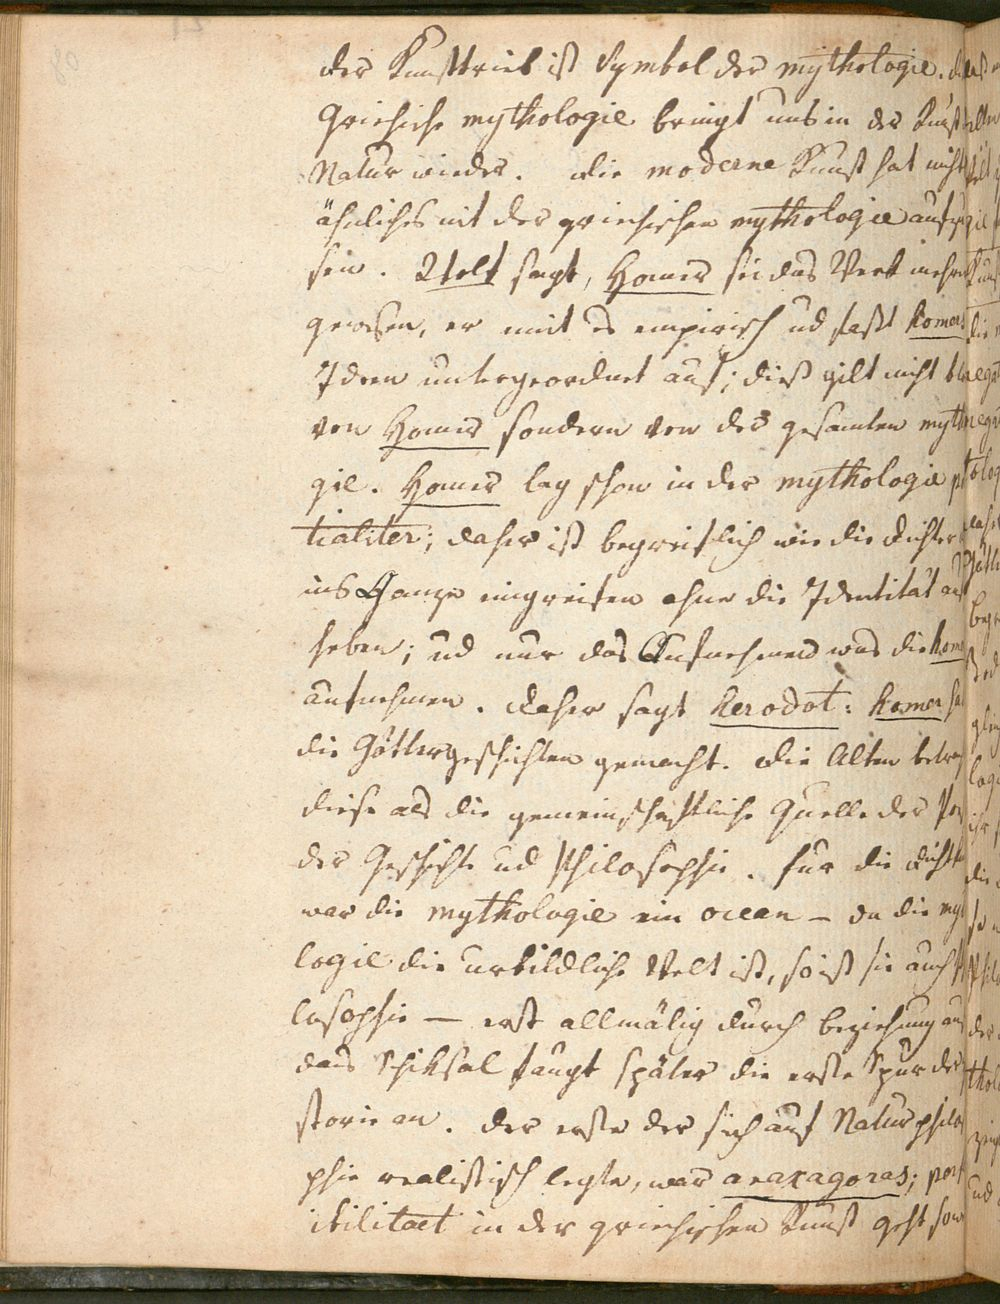 der Kunsttrieb ist Symbol der mythologie. d
Griechiche mythologie bringt uns in der Kunst
Natur wieder. die moderne Kunst hat nicht
ähnliches mit der griechischen mythologie aufzu
sein. Wolf sagt, Homer sei das Werk mehre
gewesen, er meint es empirisch ud faßt Homers
Ideen untergeordnet auf; dieß gilt nicht blo
von Homer sondern von der gesamten myth
gie. Homer lag schon in der mythologie po
tialiter; daher ist begreiflich wie die dichter
ins Ganze eingreifen ohne die Identität auf
heben; ud nur das Aufnehmen was die Home
aufnehmen. daher sagt Herodot: Homer ha
die Göttergeschichten gemacht. die Alten betrach
diese als die gemeinschaftliche Quelle der Poe
der Geschichte ud Philosophie. für die dicht
war die mythologie ein ocean – da die myt
logie die urbildliche Welt ist, so ist sie auch
losophie — erst allmälig durch beziehung auf
das Schiksal fangt später die erste Spur der
storie an. der erste der sich auf Naturphilo
phie realistisch legte, war anaxagoras;
ibilitaet in der griechischen Kunst geht